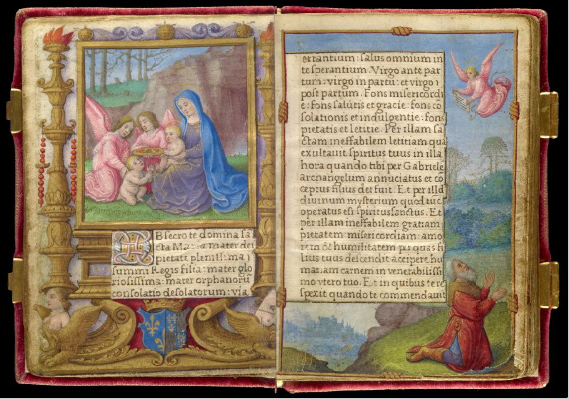 Obsecro te domina sa
cta Maria mater dei
pietate plenissima
summi Regis filia: mater glo
riosissima: mater orphanorū
consolatio desolatorum: via
errantium: salus omnium in
te sperantium. Virgo ante par
tum: virgo in partu: et virgo
post partum. Fons misericordi
e: fons salutis et gracie: fons co
solationis et indulgentie: fons
pietatis et letitie. Per illam sa
ctam ineffabilem letitiam qua
exultauit spiritus tuus in illa
hora quando tibi per Gabriele
archangelum annuciatus et co
ceptus filius dei fuit. Et per illud
diuinum mysterium quod tūc
operatus est spiritus sanctus. Et
per illam ineffabilem gratiam
pietatem: misericordiam: amo
rem et humilitatem per quas fi
lius tuus descendit accipere hu
manam carnem in venerabilissi
mo vtero tuo. Et in quibus te re
spexit quando te commendauit